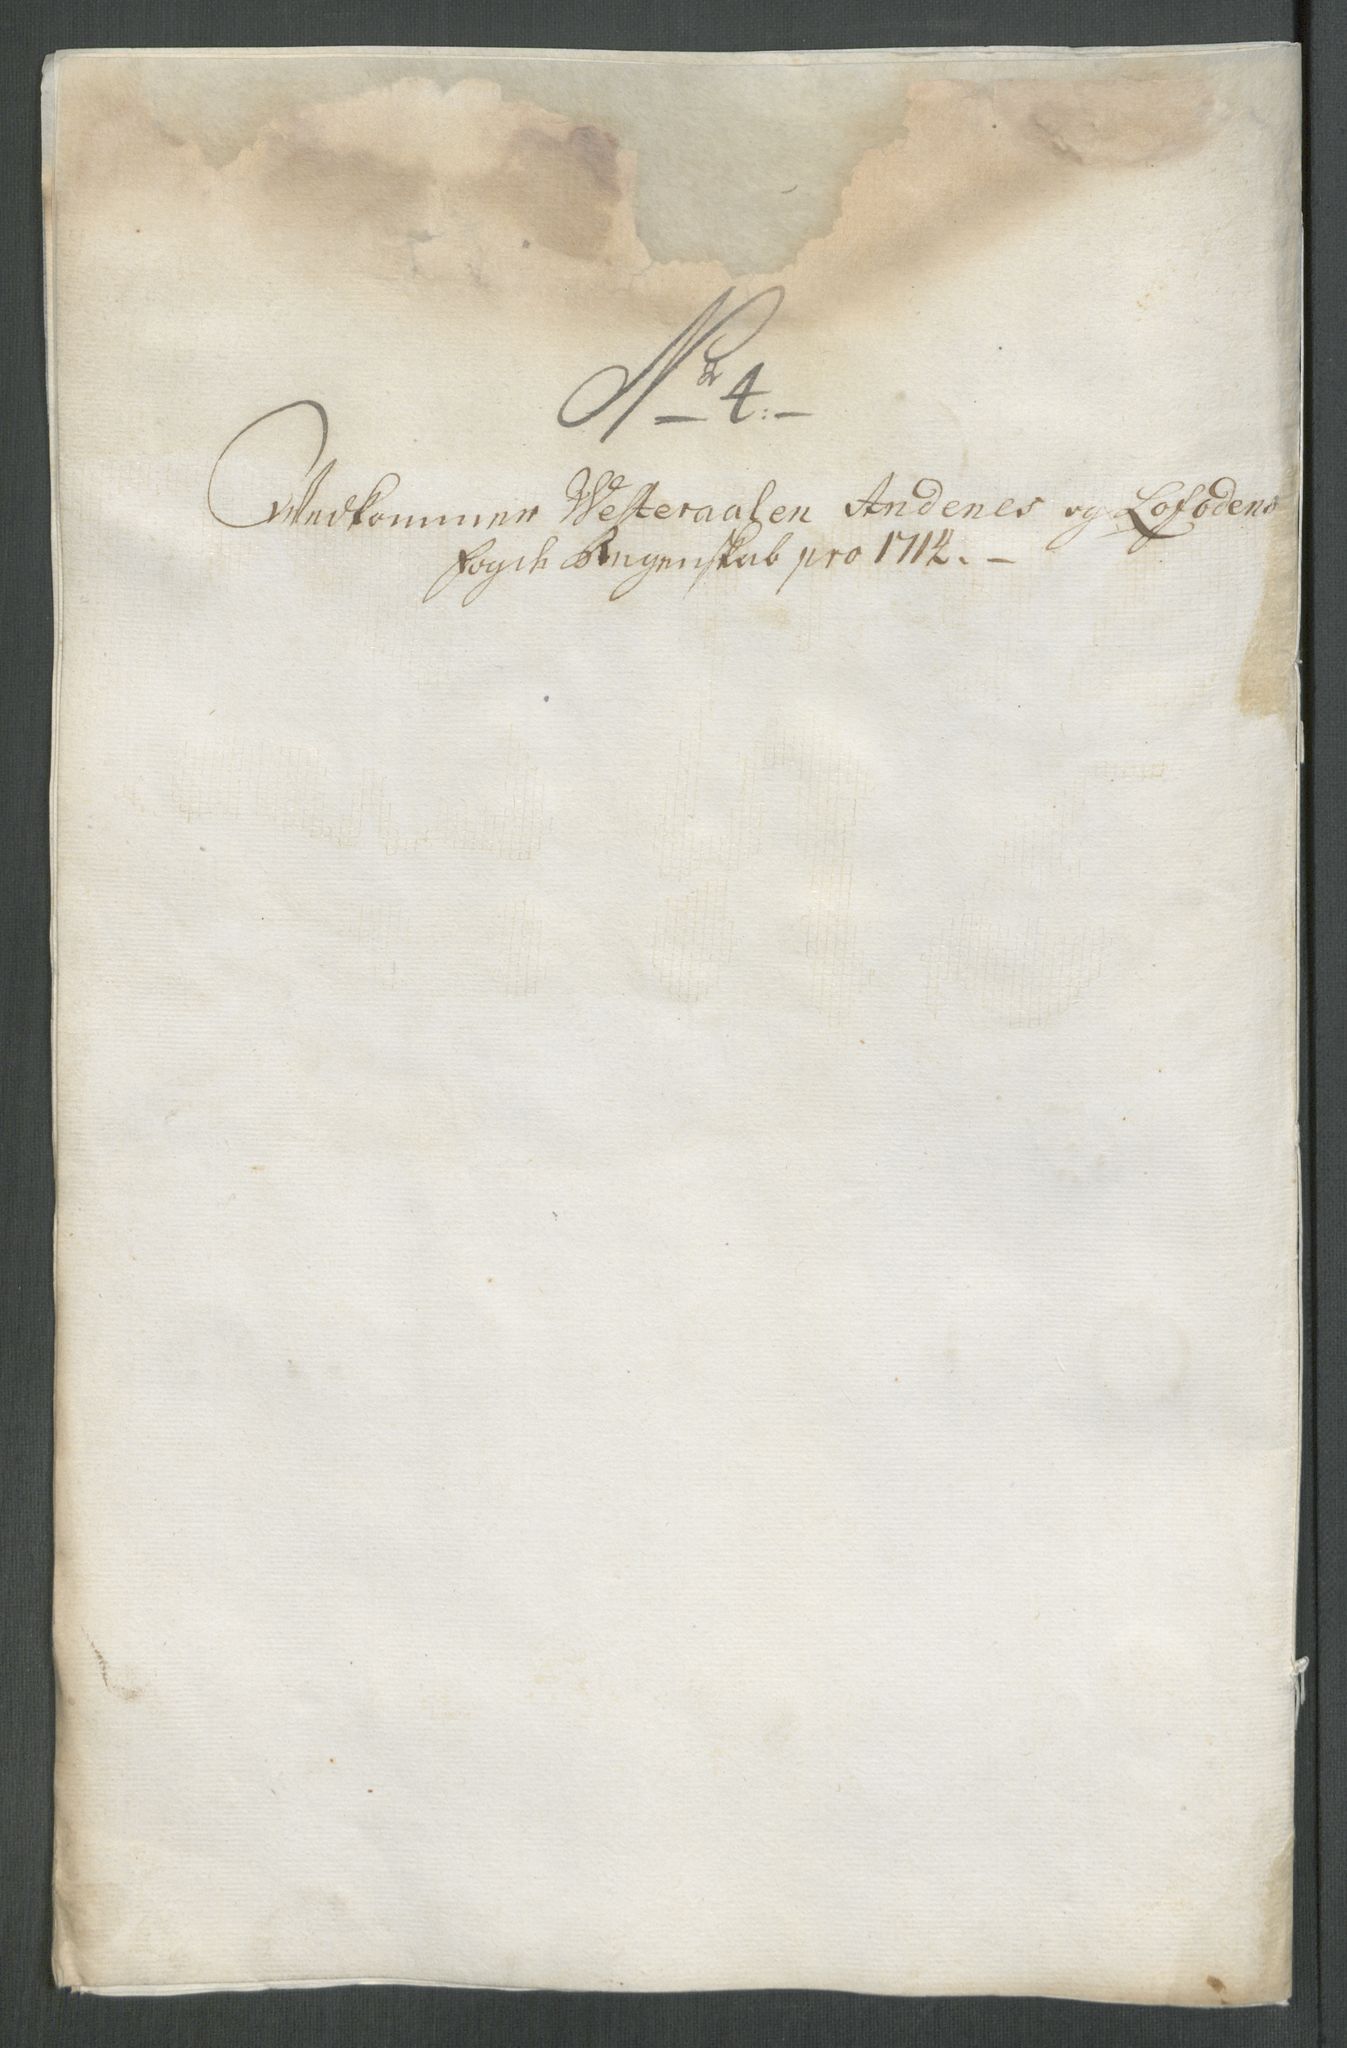 No 4:
Vedkommer Westeraalen Andenes og Lofodens
fogds Regenskab pro 1712.